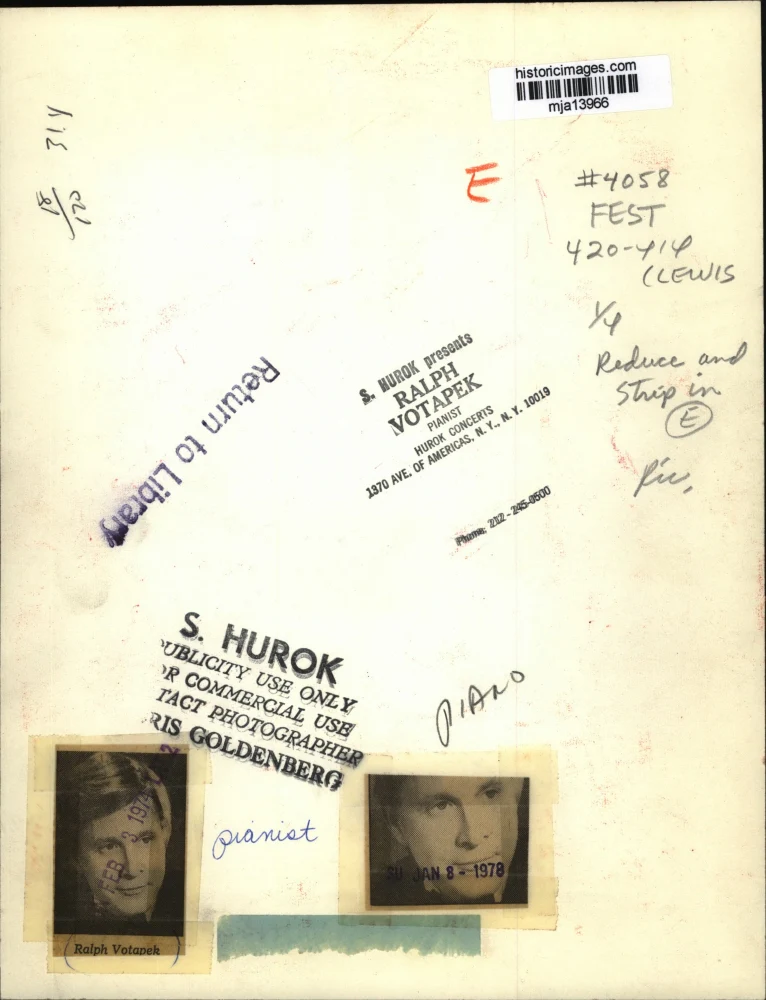 historicimages.com
mja13966
314
18/170
E
#4058
FEST
420-414
(LEWIS
1/4
Reduce and
Strip in
E
Return to Library
S. HUROK presents
RALPH
VOTAPEK
PIANIST
HUROK CONCERTS
1370 AVE. OF AMERICAS, N. Y., N. Y. 10019
Phone: 212-245-0500
S. HUROK
UBLICITY USE ONLY
R COMMERCIAL USE
TACT PHOTOGRAPHER
RIS GOLDENBERG
PIANO
FEB 3 1974
pianist
SU JAN 8 - 1978
Ralph Votapek